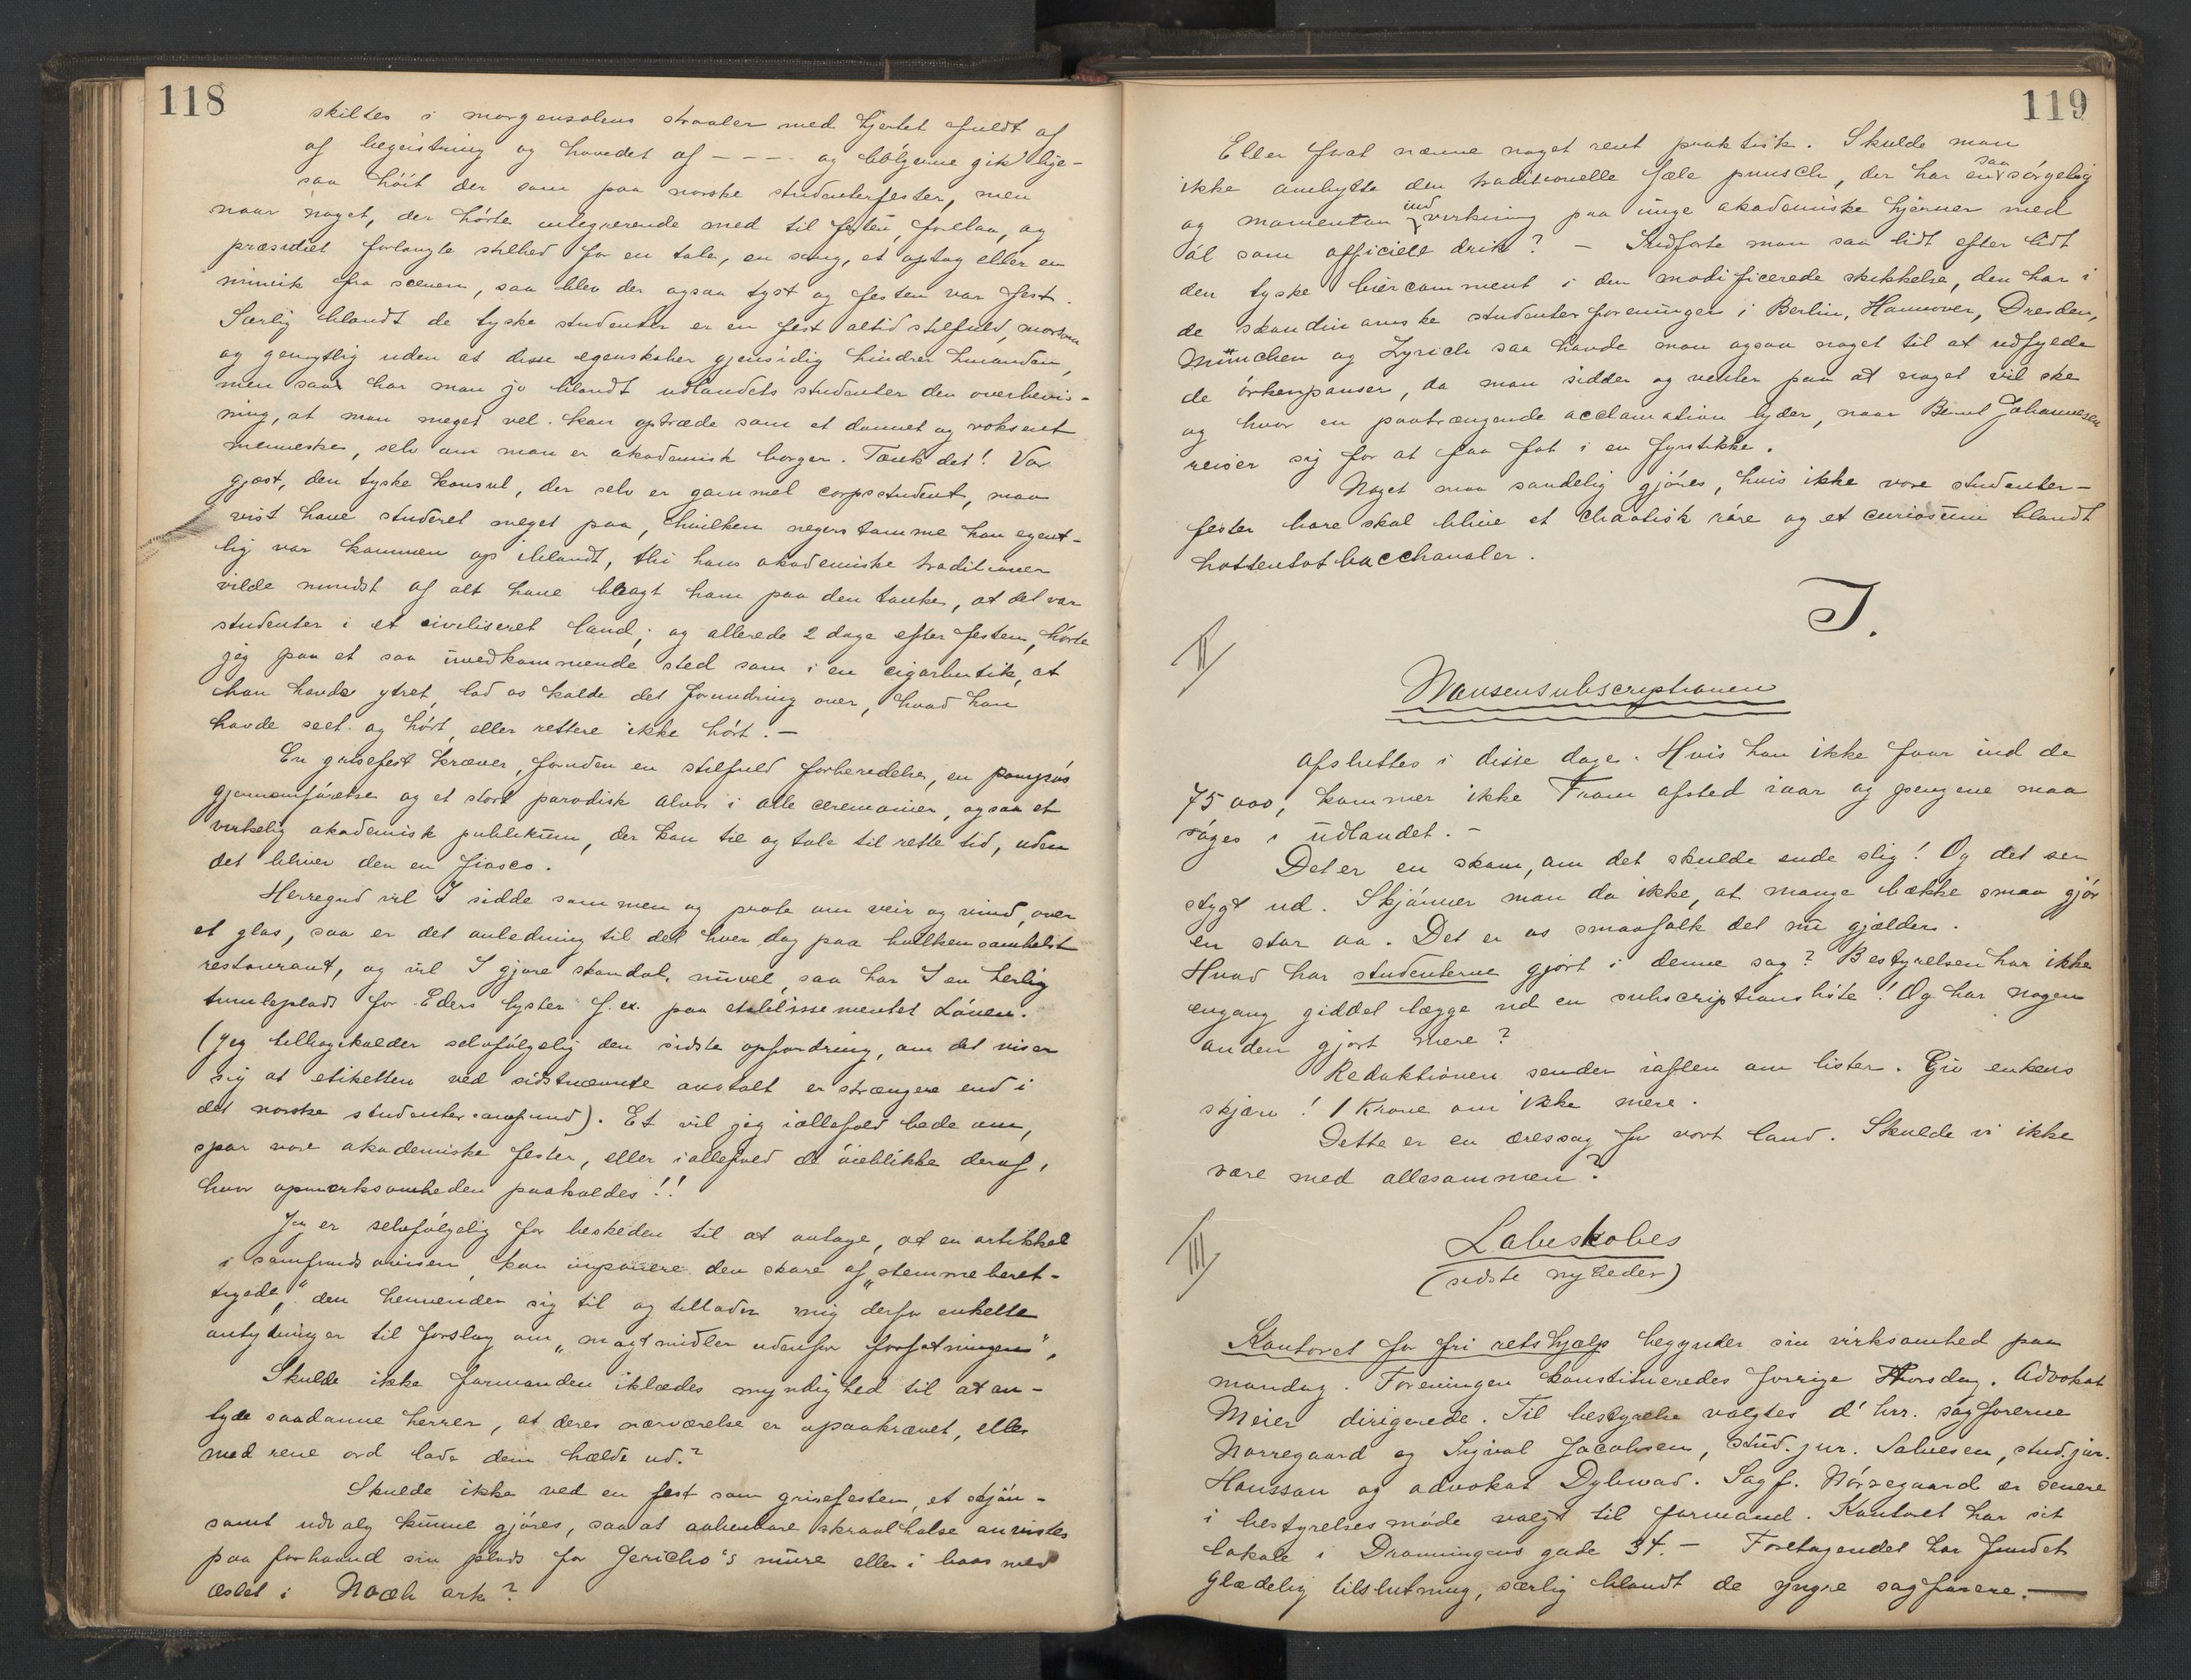 118
skiltes i morgensolens straaler med hjertet fuldt af
af begeistring og hovedet af - - - - og bølgerne gik lige-
saa høit der som paa norske studenterfester, men
naar noget, der hørte integrerende med til festen, forelaa, og
præsidiet forlangte stilhed for en tale, en sang, et optog eller en
mimik fra scenen, saa blev der ogsaa tyst og festen var fest.
Særlig blandt de tyske studenter er en fest altid stilfuld, morsom
og gemytlig uden at disse egenskaber gjensidig hindrer hinanden,
men saa har man jo blandt udlandets studenter den overbevis-
ning, at man meget vel kan optræde som et dannet og voksent
menneske, selv om man er akademisk borger. Tænk det! Vor
gjæst, den tyske konsul, der selv er gammel corpsstudent, maa
vist have studeret meget paa, hvilken negerstamme han egent-
lig var kommen op iblandt, thi hans akademiske traditioner
vilde mindst af alt have bragt ham paa den tanke, at det var
studenter i et civiliseret land; og allerede 2 dage efter festen, hørte
jeg paa et saa uvedkommende sted som i en cigarbutik, at
han havde ytret, lad os kalde det forundring over, hvad han
havde seet og hørt, eller rettere ikke hørt. -
En grisefest kræver, foruden en stilfuld forberedelse, en pompøs
gjennemførelse og et stort parodisk alvor i alle ceremonier, ogsaa et
virkelig akademisk publikum, der kan tie og tale til rette tid, uden
det bliver den en fiasco.
Herregud vil I sidde sammen og prate om veir og vind, over
et glas, saa er det anledning til det hver dag paa hvilkensomhelst
restaurant, og vil I gjøre skandale, nuvel, saa har I en herlig
tumleplads for Eders lyster f. ex. paa etablissementet Løven.
(Jeg tilbagekalder selvfølgelig den sidste opfordring, om det viser
sig at etiketten ved sidstnævnte anstalt er strængere end i
det norske studentersamfund). Et vil jeg iallefald bede om,
spar vore akademiske fester, eller iallefald de øieblikke deraf,
hvor opmerksomheden paakaldes!!
Jeg er selvfølgelig for beskeden til at antage, at en artikkel
i samfundsavisen kan imponere den skare af „stemmeberet-
tigede," den henvender sig til og tillader mig derfor enkelte
antydninger til forslag om „magtmidler udenfor forfatningen",
Skulde ikke formanden iklædes myndighed til at an-
tyde saadanne herrer, at deres nærværelse er upaakrævet, eller
med rene ord lade dem hælde ud?
Skulde ikke ved en fest som grisefesten, et skjøn-
somt udvalg kunne gjøres, saa at aabenbare skraalhalse anvistes
paa forhaand sin plads for Jericho's mure eller i baas med
æslet i Noæh ark?
119
Eller forat nævne noget rent praktisk. Skulde man
ikke ombytte den traditionelle fæle punsch, der har en saa sørgelig
og momentan indvirkning paa unge akademiske hjerner med
øl som officiell drik? - Indførte man saa lidt efter lidt
den tyske biercomment i den modificerede skikkelse, den har i
de skandinaviske studenterforeninger i Berlin, Hannover, Dresden,
München og Zyrich saa havde man ogsaa noget til at udfylde
de ørkenpauser, da man sidder og venter paa at noget vil ske
og hvor en paatrængende acclamation lyder, naar Bernt Johannesen
reiser sig for at faa fat i en fyrstikke.
Noget maa sandelig gjøres, hvis ikke vore studenter-
fester bare skal blive et chaotisk røre og et curiosum blandt
hottentotbacchanaler.
J.
II
Nansensubscriptionen
afsluttes i disse dage. Hvis han ikke faar ind de
75 000, kommer ikke Fram afsted iaar og pengene maa
søges i udlandet. -
Det er en skam, om det skulde ende slig! Og det ser
stygt ud. Skjønner man da ikke, at mange bække smaa gjør
en stor aa. Det er os smaafolk det nu gjælder.
Hvad har studenterne gjort i denne sag? Bestyrelsen har ikke
engang giddet lægge ud en subscriptionsliste! Og har nogen
anden gjort mere?
Redaktionen sender iaften om lister. Giv enkens
skjærv! 1 Krone om ikke mere.
Dette er en æressag for vort land. Skulde vi ikke
være med allesammen?
III
Labeskobes
(sidste nyheder)
Kontoret for fri retshjælp begynder sin virksomhed paa
mandag. Foreningen konstitueredes forrige Thorsdag. Advokat
Meier dirigerede. Til bestyrelse valgtes d' hrr. sagførerne
Nørregaard og Sigval Jacobsen, stud. jur. Salvesen, stud. jur.
Hansson og advokat Dybwad. Sagf. Nørregaard er senere
i bestyrelsesmøde valgt til formand. Kontoret har sit
lokale i Dronningens gade 34. - Foretagendet har fundet
glædelig tilslutning, særlig blandt de yngre sagførere. -